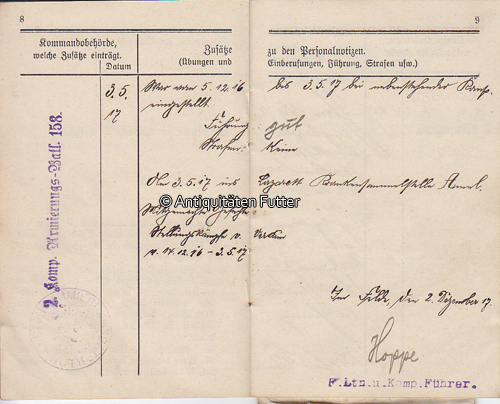 8
Kommandobehörde,
welche Zusätze einträgt.
Datum
Zusätze
(Übungen und
3.5.
17
War vom 5.12.16
eingestellt.
Führung:
Strafen:
Am 3.5.17 ins
Mitgemachte Gefechte
Stellungskämpfe v. Verdun
v. 14.12.16 – 3.5.17
2. Komp. Armierungs-Batl. 158.
9
zu den Personalnotizen.
Einberufungen, Führung, Strafen usw.)
bis 3.5.17 bei nebenstehender Komp.
gut
Keine
Lazarett Krankensammelstelle
Im Felde, den 2. Dezember 17.
Hoppe
F.Ltn.u.Komp.Führer.
© Antiquitäten Futter